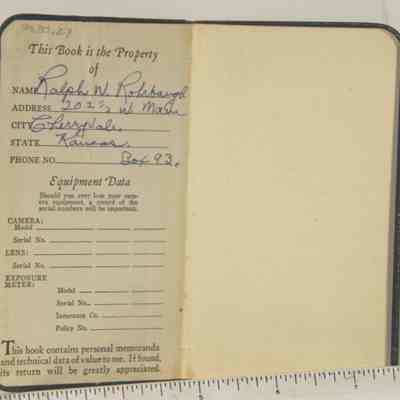 This Book is the Property
of
NAME Ralph W. Rohrbaugh
ADDRESS 202½ W. Main
CITY Cherryvale,
STATE Kansas.
PHONE NO. Box 93.
Equipment Data
Should you ever lose your cam-
era equipment, a record of the
serial numbers will be important.
CAMERA:
Model
Serial No.
LENS:
Serial No.
EXPOSURE
METER:
Model
Serial No.
Insurance Co.
Policy No.
This book contains personal memoranda
and technical data of value to me. If found,
its return will be greatly appreciated.